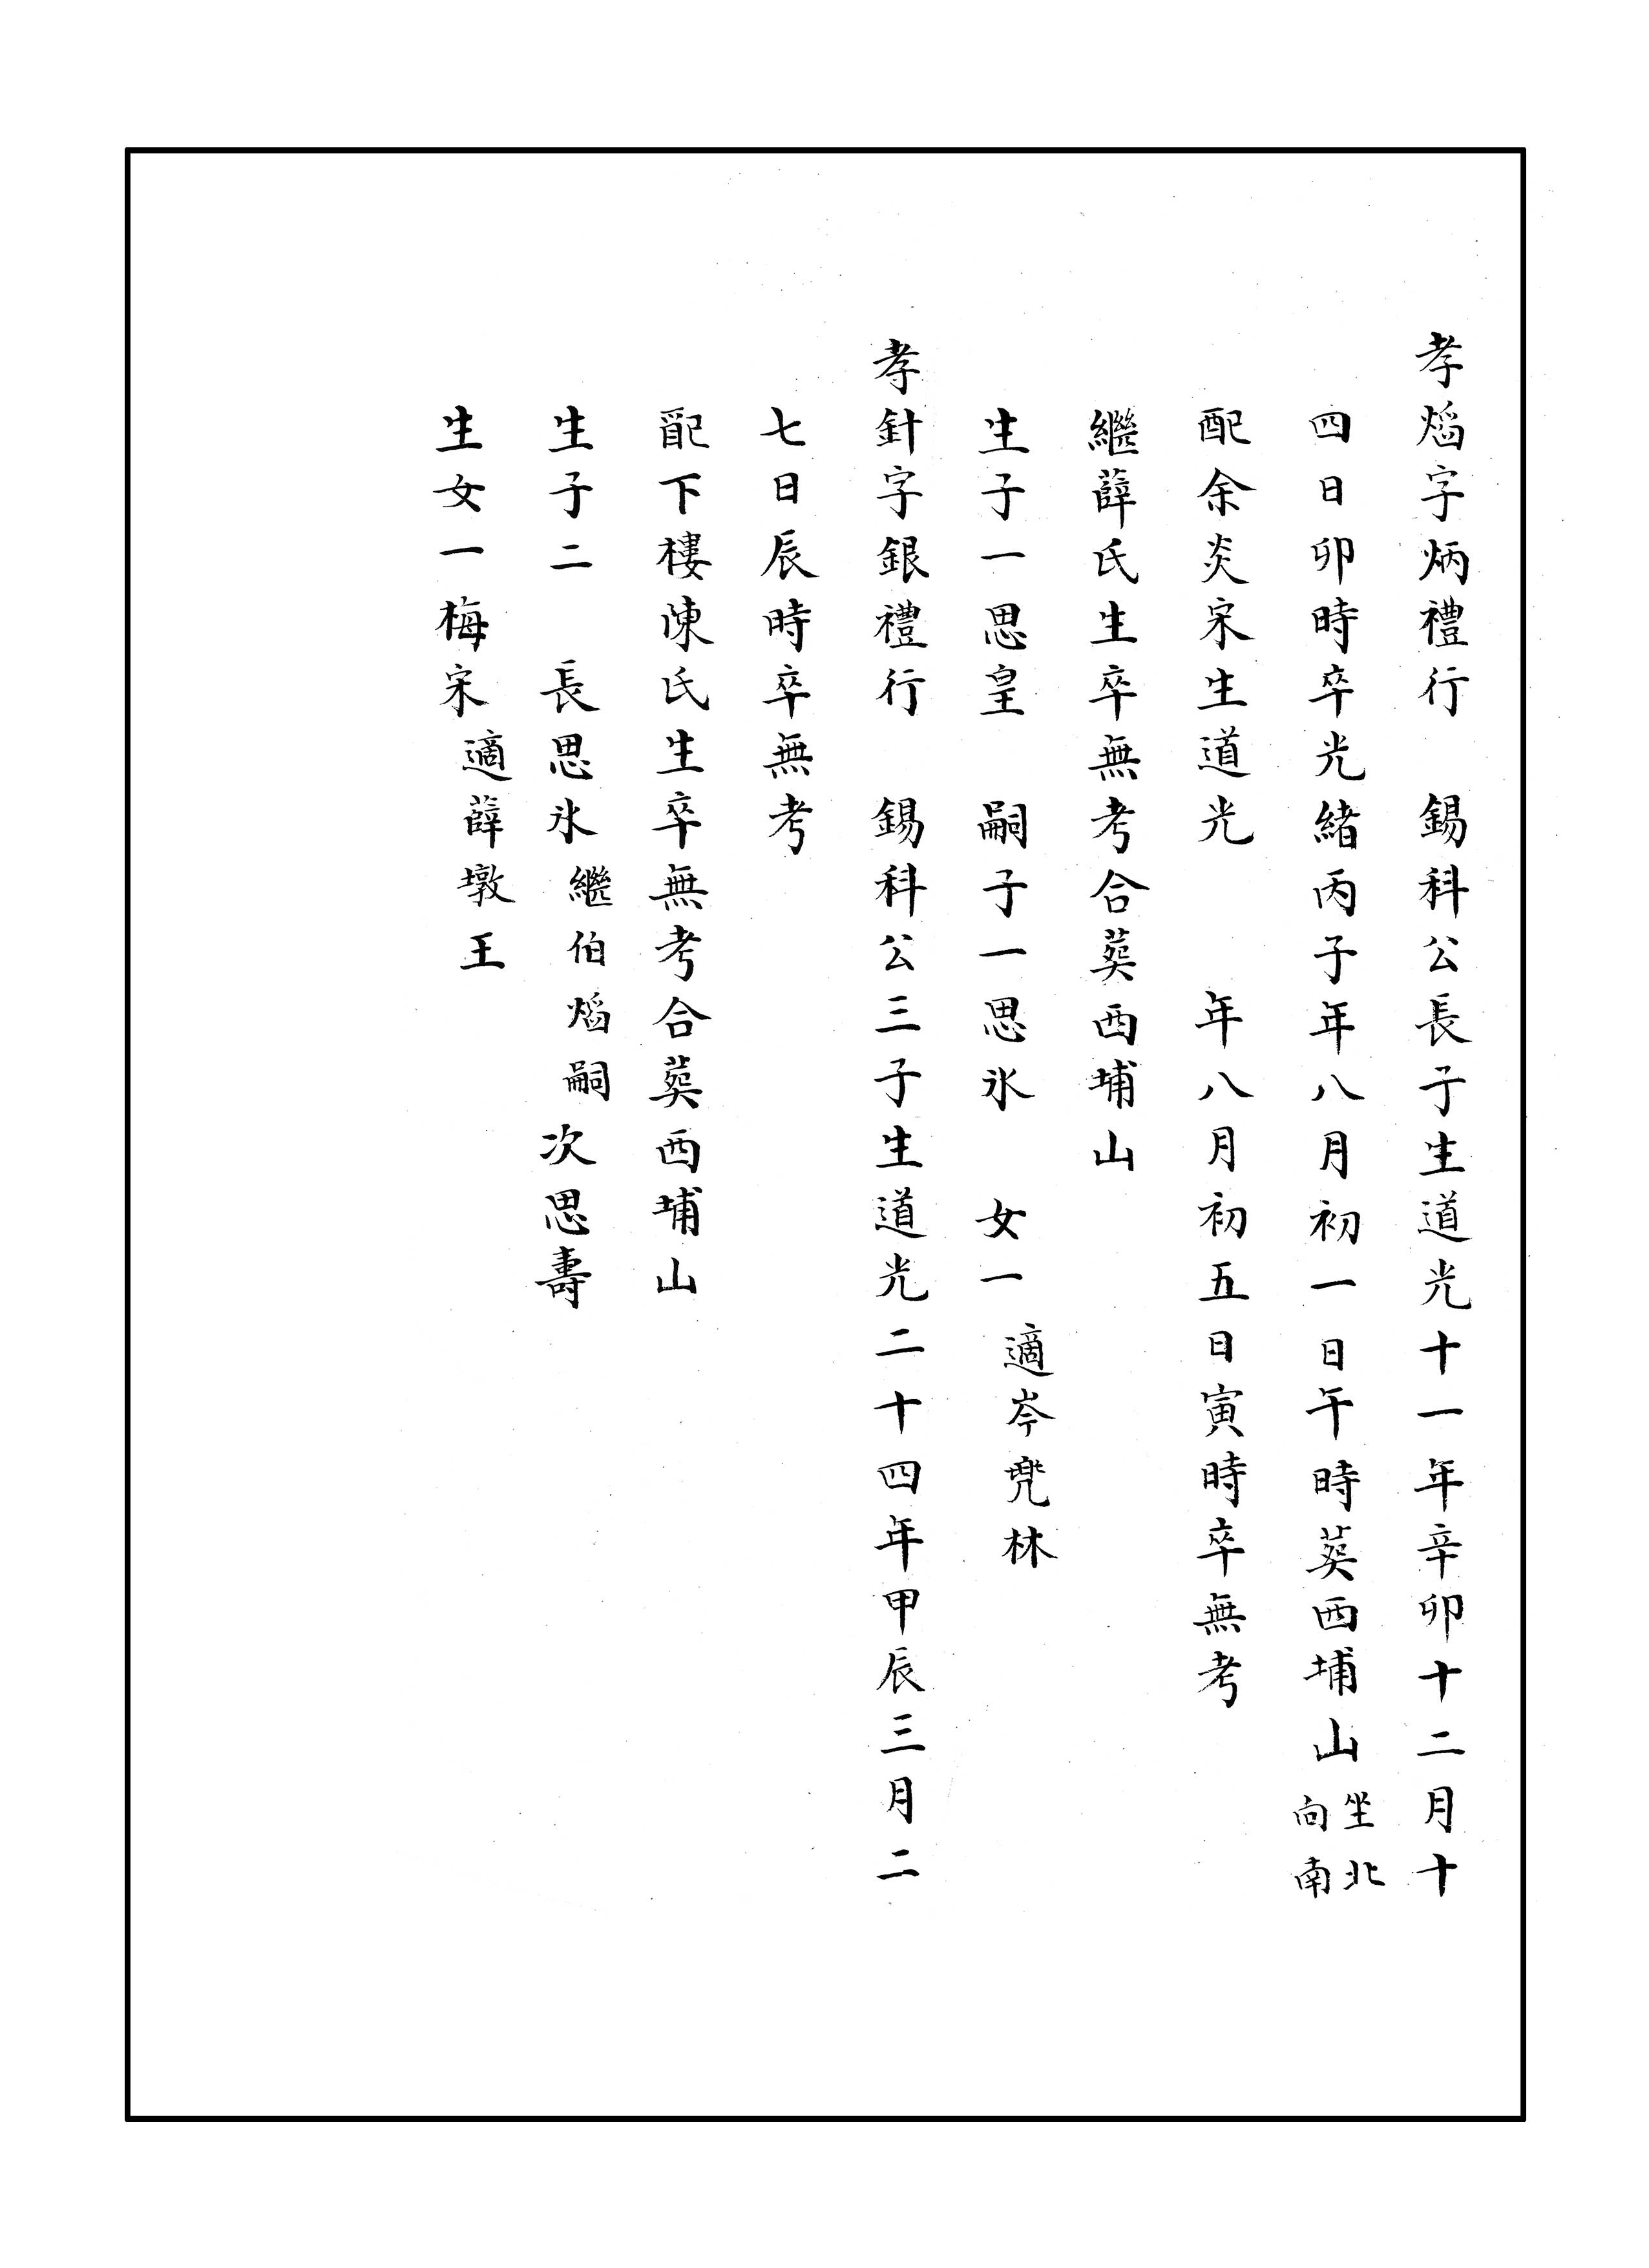 孝熖字炳禮行　錫科公長子生道光十一年辛卯十二月十
四日卯時卒光緒丙子年八月初一日午時葬西埔山坐北向南
配余炎宋生道光　　年八月初五日寅時卒無考
繼薛氏生卒無考合葬西埔山
生子一思皇　嗣子一思氷　女一適岑兠林
孝針字銀禮行　錫科公三子生道光二十四年甲辰三月二
七日辰時卒無考
配下樓陳氏生卒無考合葬西埔山
生子二　長思氷繼伯熖嗣次思壽
生女一梅宋適薛墩王